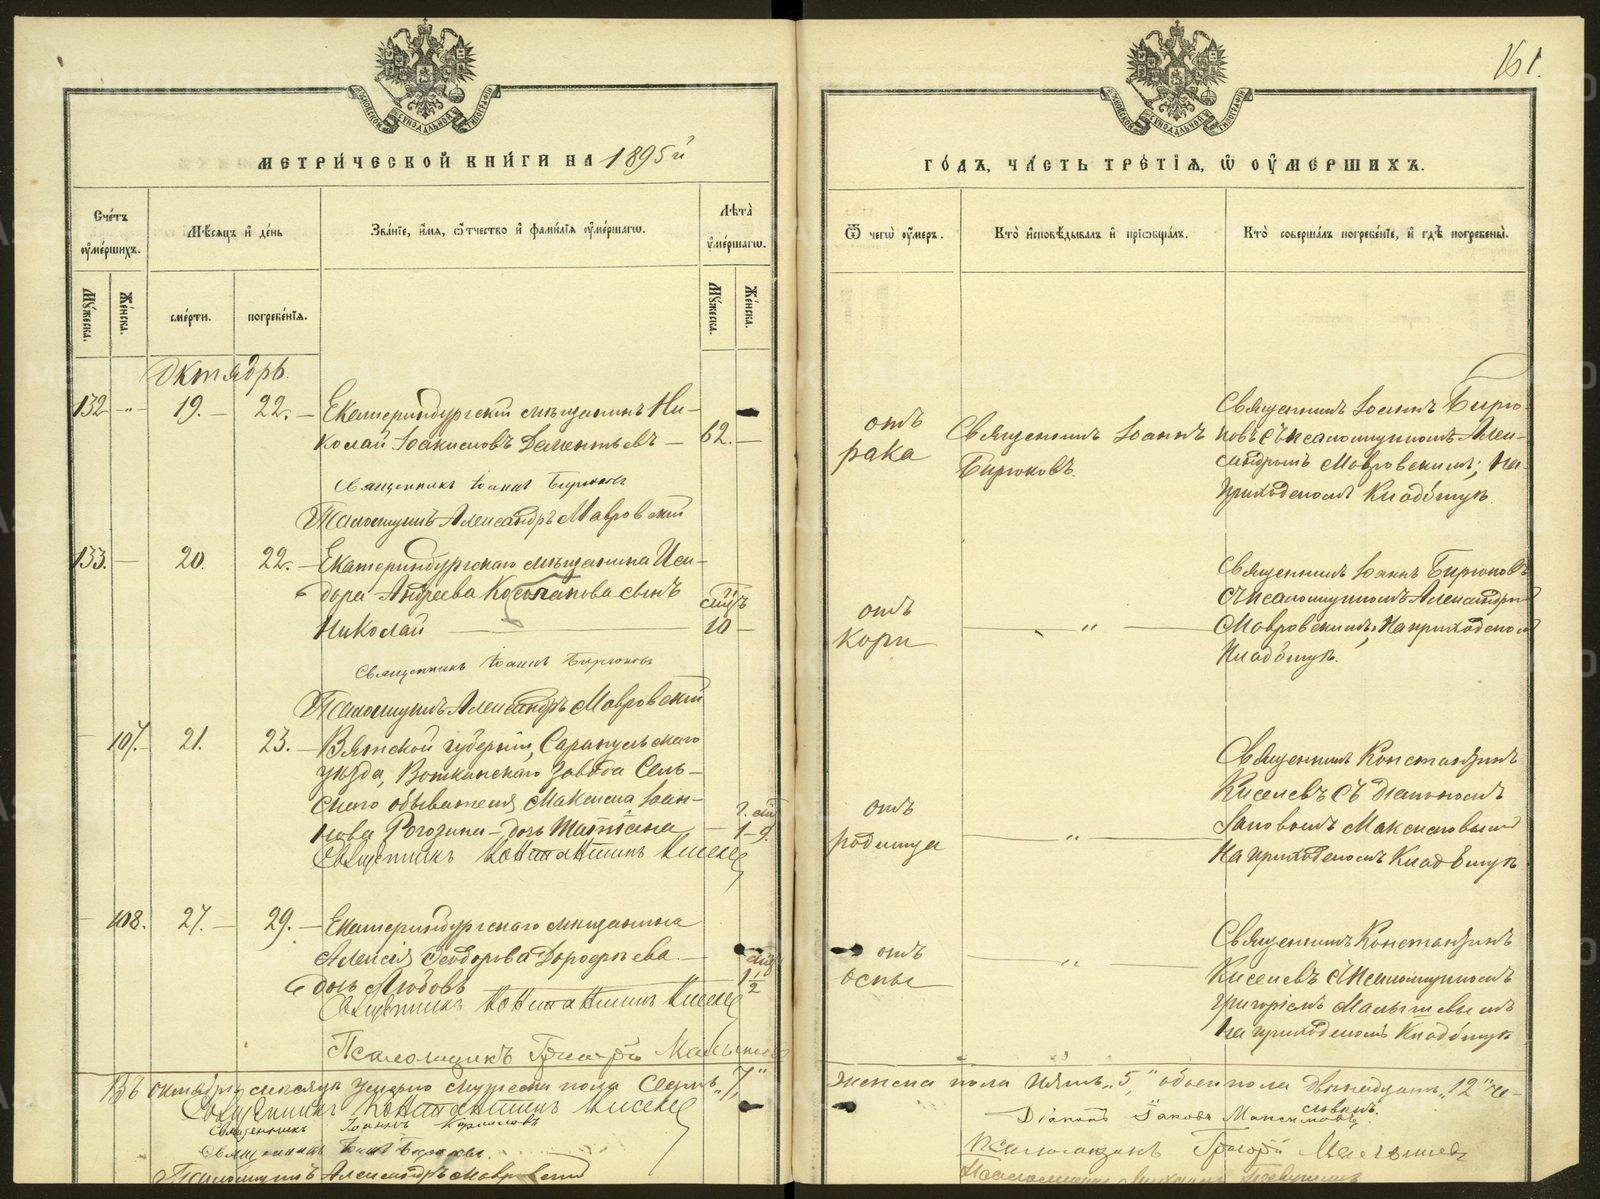 161.
МЕТРИЧЕСКОЙ КНИГИ НА 1895й
ГОДЪ, ЧАСТЬ ТРЕТІЯ, Ѿ ОУМЕРШИХЪ.
Счетъ оумершихъ.
Мѣсяцъ и день
Званіе, имя, ѿчество и фамилія оумершагѡ.
Лѣта оумершагѡ.
Ѿ чегѡ оумеръ.
Кто исповѣдывалъ и пріобщалъ.
Кто совершалъ погребеніе, и гдѣ погребены.
Мужеска.
Женска.
смерти.
погребенія.
Мужеска.
Женска.
Октябрь.
132 -"- 19. — 22. — Екатеринбургскій мѣщанинъ Ни-
колай Іоакимовъ Дементьевъ — 62. —
Священникъ Іоаннъ Бирюковъ
Псаломщикъ Александръ Мавровскій
отъ
рака
Священникъ Іоаннъ
Бирюковъ.
Священникъ Іоаннъ Бирю-
ковъ съ псаломщикомъ Алек-
сандромъ Мавровскимъ; на
приходскомъ кладбищѣ.
133. — 20. 22. — Екатеринбургскаго мѣщанина Иси-
дора Андреева сынъ
Николай — 10 —
Священникъ Іоаннъ Бирюковъ
Псаломщикъ Александръ Мавровскій
отъ
кори
— " —
Священникъ Іоаннъ Бирюковъ
съ псаломщикомъ Александромъ
Мавровскимъ, на приходскомъ
кладбищѣ.
— 107. 21. 23. — Вятской губерніи, Сарапульскаго
уѣзда, Воткинскаго завода сель-
скаго обывателя Максима Іоан-
нова Рогозина — дочь Татіана —
Священникъ Константинъ Киселевъ
отъ
родимца
— " —
Священникъ Константинъ
Киселевъ съ діакономъ
Іаковомъ Максимовымъ
на приходскомъ кладбищѣ
— 108. 27. — 29. — Екатеринбургскаго мѣщанина
Алексія Ѳеодорова Дорофеева —
дочь Любовь 1 1/2
Священникъ Константинъ Киселевъ
Псаломщикъ Григорій Малышевъ
отъ
оспы
— " —
Священникъ Константинъ
Киселевъ съ псаломщикомъ
Григоріемъ Малышевымъ
на приходскомъ кладбищѣ
Въ октябрѣ мѣсяцѣ умерло мужеска пола семь „7"
женска пола пять „5," обоего пола двѣнадцать „12" че-
ловѣкъ.
Священникъ Константинъ Киселевъ
Священникъ Іоаннъ
Священникъ Іоаннъ Бирюковъ
Псаломщикъ Александръ Мавровскій
Діаконъ Іаковъ Максимовъ
Псаломщикъ Григорій Малышевъ
Псаломщикъ